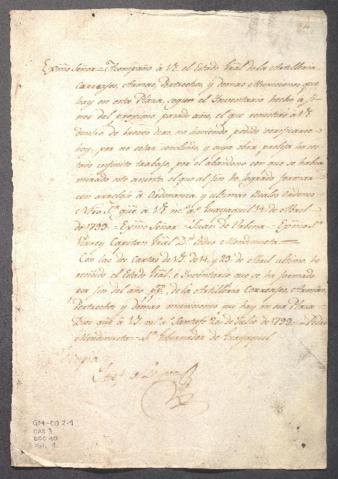 Exmo Señor = Acompaño à VE. el Estado Gral. de la Artilleria
Carruajes, Armas, Pertrechos, y demas Municiones que
hay en esta Plaza, segun el Inventario hecho à fi-
nes del proximo pasado año, el que remitiré à VE
dentro de breves dias no haviendo podido verificarlo
hoy, por no estar concluido, y cuya obra prolija ha cos-
tado infinito trabajo, por el abandono con que se havia
mirado este asunto el que al fin he logrado formar
con arreglo à Ordenanza, y ultimas Reales Ordenes
Ntro. Sr. gue. à VE. ms. as. Guayaquil 14 de Abril
de 1793 = Exmo Señor = Juan de Urbina = Exmo Sr.
Virrey Capitan Gral. Dn.
Con las dos Cartas de VS. de 14, y 23 de Abril ultimo he
recivido el Estado Gral. è Inventario que se ha formado
por fin del año pp. de la Artilleria Carruajes, Armas,
Pertrechos y demas municiones que hay en esa Plaza
Dios gue. à VS. ms. as. Santafé 20 de Julio de 1793 =
Mendinueta = Sr. Governador de Guayaquil
Es Copia
GM-CO 2-1
CAS 3
DOC 40